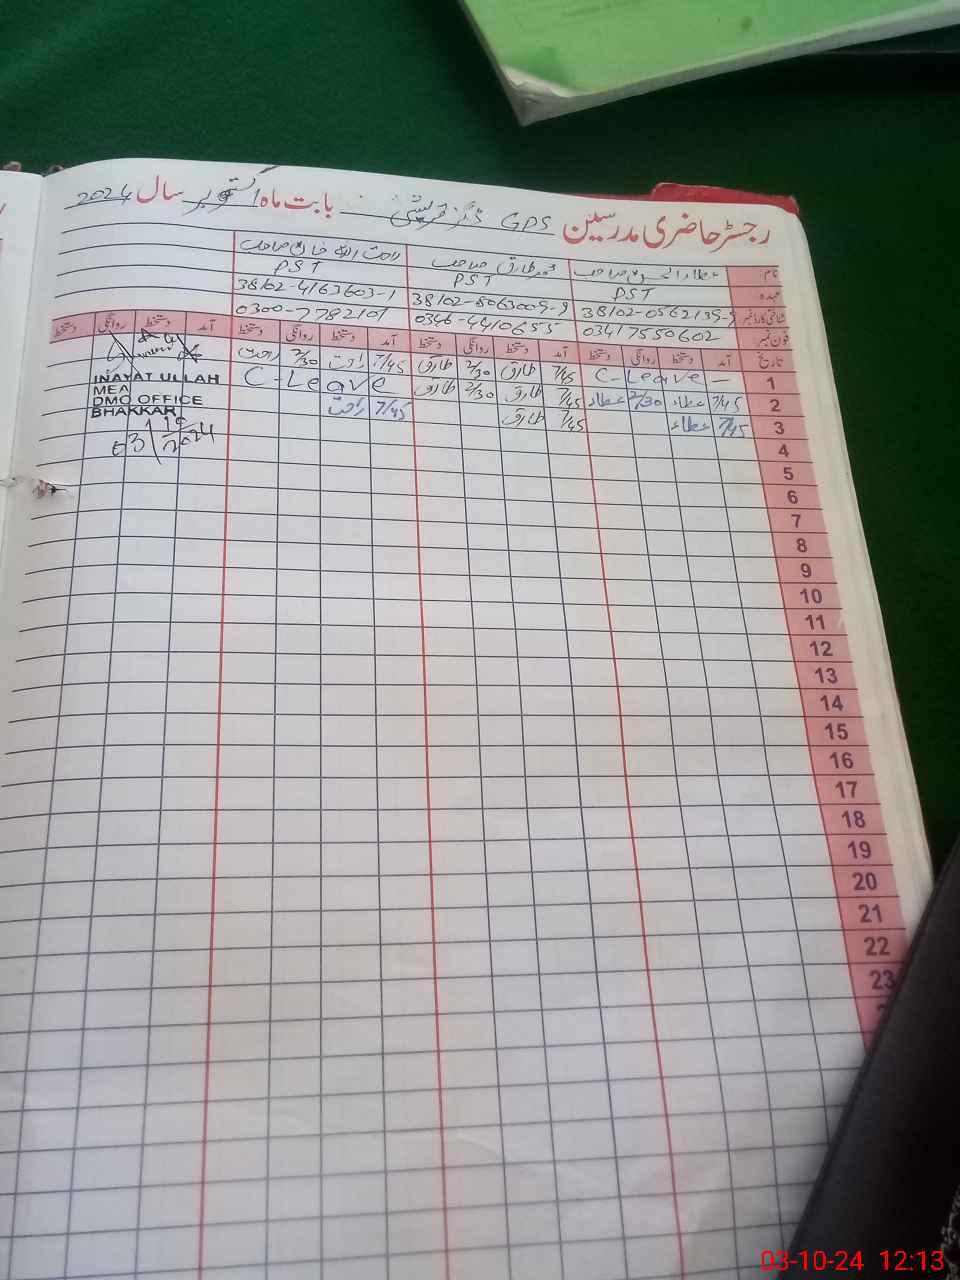 رجسٹر حاضری مدرسین GPS بابت ماہ اکتوبر سال 2024
نام عطاء الحسن صاحب محمد طارق صاحب راحت اللہ خان صاحب
عہدہ PST PST PST
شناختی کارڈ نمبر 38102-8063009-9 38102-4163603-1
فون نمبر 03417550602 0346-4410655 0300-7782101
تاریخ آمد دستخط روانگی دستخط آمد دستخط روانگی دستخط آمد دستخط روانگی دستخط آمد دستخط روانگی دستخط
1 C-Leave — 7/45 طارق 2/30 طارق 7/45 راحت 2/30 راحت
2 7/45 عطاء 2/30 عطاء 7/45 طارق 2/30 طارق C-Leave
3 7/45 عطاء 7/45 طارق 7/45 راحت
INAYAT ULLAH
MEA
DMO OFFICE
BHAKKAR
03/10/2024
4
5
6
7
8
9
10
11
12
13
14
15
16
17
18
19
20
21
22
23
03-10-24 12:13